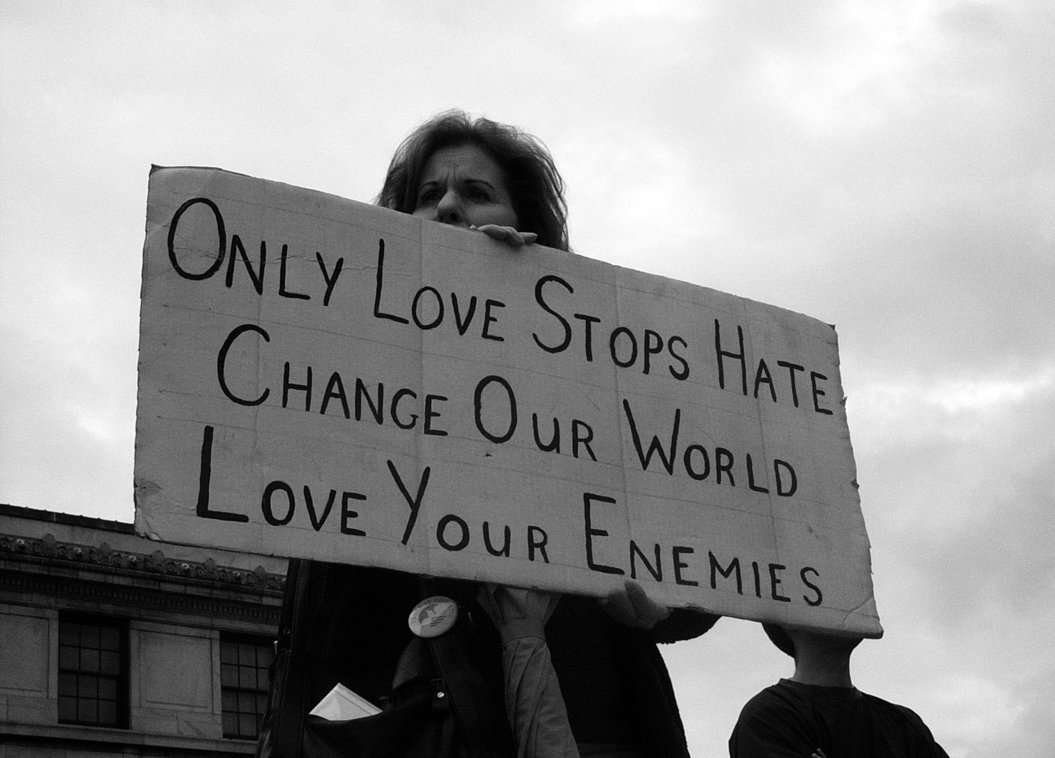 Only Love Stops Hate
Change Our World
Love Your Enemies